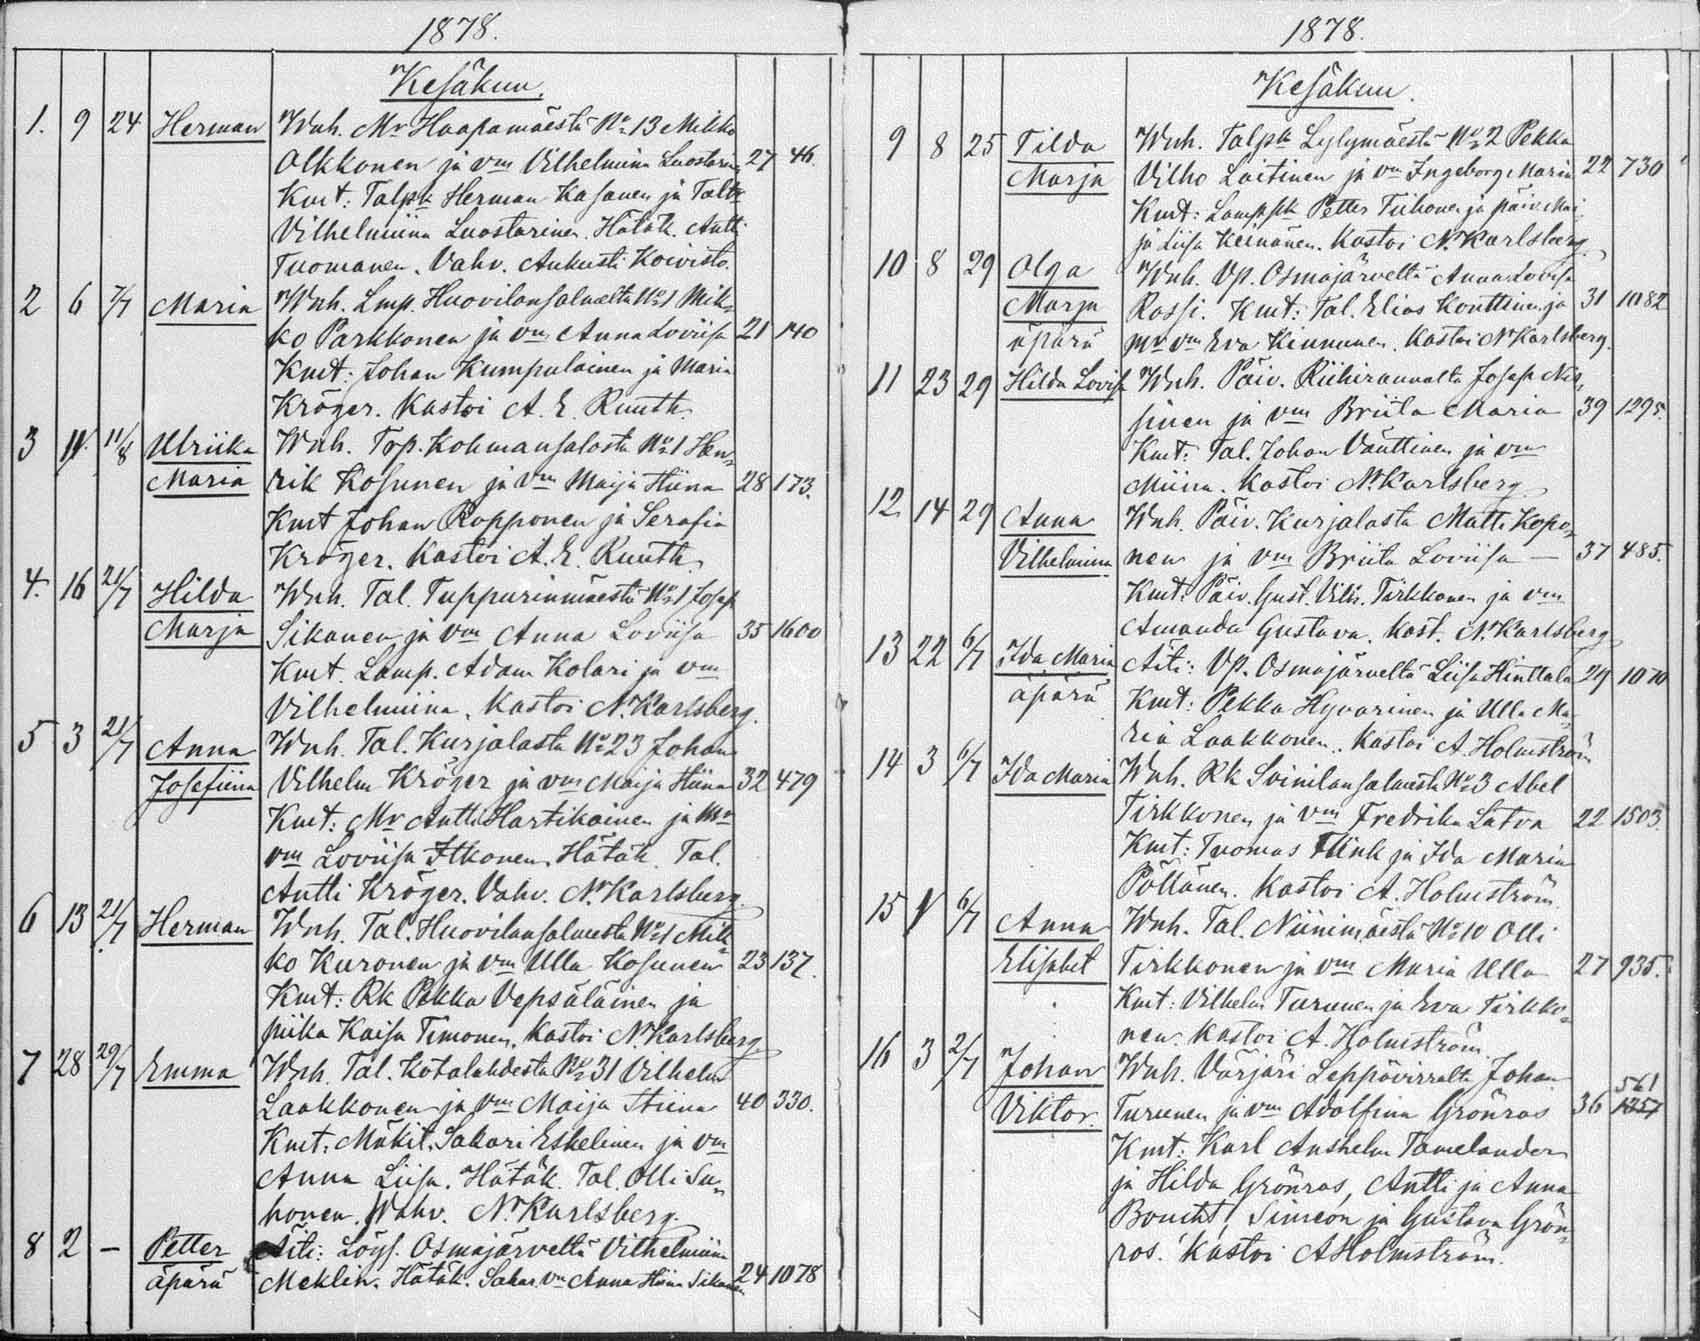 1878.
Kesäkuu.
1. 9 24 Herman Wnh. Mr Haapamäestä No 13 Mikko
Olkkonen ja vm Vilhelmina Luostarinen 27 46.
Kmt: Talpk Herman Kasanen ja Taltr
Vilhelmiina Luostarinen. Hätäk. Antti
Tuomanen. Vahv. Aukusti Koivisto.
2 6 7/7 Maria Wnh. Lmp. Huovilansalmelta No 1 Mik-
ko Parkkonen ja vm Anna Loviisa 21 140
Kmt: Johan Kumpulainen ja Maria
Kröger. Kastoi A. E. Ruuth.
3 11 11/8 Ulriika Wnh. Torp. Kohmansalosta No 1 Hen-
Maria rik Kosunen ja vm Maija Stiina 28 173.
Kmt Johan Ropponen ja Serafia
Kröger. Kastoi A. E. Ruuth
4. 16 21/7 Hilda Wnh. Tal. Tuppurinmäestä No 1 Josep
Marja Sikanen ja vm Anna Loviisa 35 1600
Kmt. Lamp. Adam Kolari ja vm
Vilhelmiina. Kastoi N. Karlsberg.
5 3 21/7 Anna Wnh. Tal. Kurjalasta No 23 Johan
Josefiina Vilhelm Kröger ja vm Maija Stiina 32 479
Kmt: Mr Antti Hartikainen ja Mr
vm Loviisa Itkonen. Hätäk. Tal.
Antti Kröger. Vahv. N. Karlsberg.
6 13 21/7 Herman Wnh. Tal. Huovilansalmesta No 1 Mik-
ko Kuronen ja vm Ulla Kosunen 23 137.
Kmt: Rk Pekka Vepsäläinen ja
piika Kaisa Timonen. Kastoi N. Karlsberg
7 28 29/7 Emma Wnh. Tal. Kotalahdesta No 31 Vilhelm
Laakkonen ja vm Maija Stiina 40 330.
Kmt: Mäkit. Sakari Eskelinen ja vm
Anna Liisa. Hätäk. Tal. Olli Su-
honen. Wahv. N. Karlsberg
8 2 — Petter Äiti: Löys. Osmajärveltä Vilhelmiina
äpärä Meklin. Hätäk. Sakar. vm Anna Stiina Sikanen 24 1078
1878.
Kesäkuu.
9 8 25 Tilda Wnh. Talpk Lylymäestä No 2 Pekka
Marja Vilho Laitinen ja vm Ingeborg Maria 22 730
Kmt: Lamppk Petter Tiihonen ja päiv.
ja Liisa Keinänen. Kastoi N. Karlsberg
10 8 29 Olga Wnh. Vp. Osmajärveltä Anna Lovisa
Marja Rossi. Kmt: Tal. Elias Konttinen ja 31 1082
äpärä mr vm Eva Kinnunen. Kastoi N. Karlsberg.
11 23 29 Hilda Lovisa Wnh. Päiv. Riihirannalta Josep Nis-
sinen ja vm Briita Maria 39 1295.
Kmt: Tal. Johan Vänttinen ja vm
Miina. Kastoi N. Karlsberg
12. 14 29 Anna Wnh. Päiv. Kurjalasta Matti Kopo-
Vilhelmina nen ja vm Briita Loviisa — 37 485.
Kmt: Päiv. Gust. Vilh. Tirkkonen ja vm
Amanda Gustava. Kast. N. Karlsberg
13 22 6/7 Ida Maria Äiti: Vp. Osmajärveltä Liisa Hinttala 29 1070
äpärä Kmt: Pekka Hyvärinen ja Ulla Ma-
ria Laakkonen. Kastoi A. Holmström
14 3 6/7 Ida Maria Wnh. Rk Soinilansalmesta No 3 Abel
Tirkkonen ja vm Fredrika Latva 22 1503.
Kmt: Tuomas Flink ja Ida Maria
Pöllänen. Kastoi A. Holmström
15 1 6/7 Anna Wnh. Tal. Niinimäestä No 10 Olli
Elisabet Tirkkonen ja vm Maria Ulla 27 935.
Kmt: Vilhelm Turunen ja Eva Tirkko-
nen. Kastoi A. Holmström.
16 3 2/7 Johan Wnh. Värjäri Leppävirralta Johan 561
Viktor. Turunen ja vm Adolfina Grönros 36 1257
Kmt: Karl Anshelm Tamelander
ja Hilda Grönros, Antti ja Anna
Boucht, Simeon ja Gustava Grön-
ros. Kastoi A Holmström.